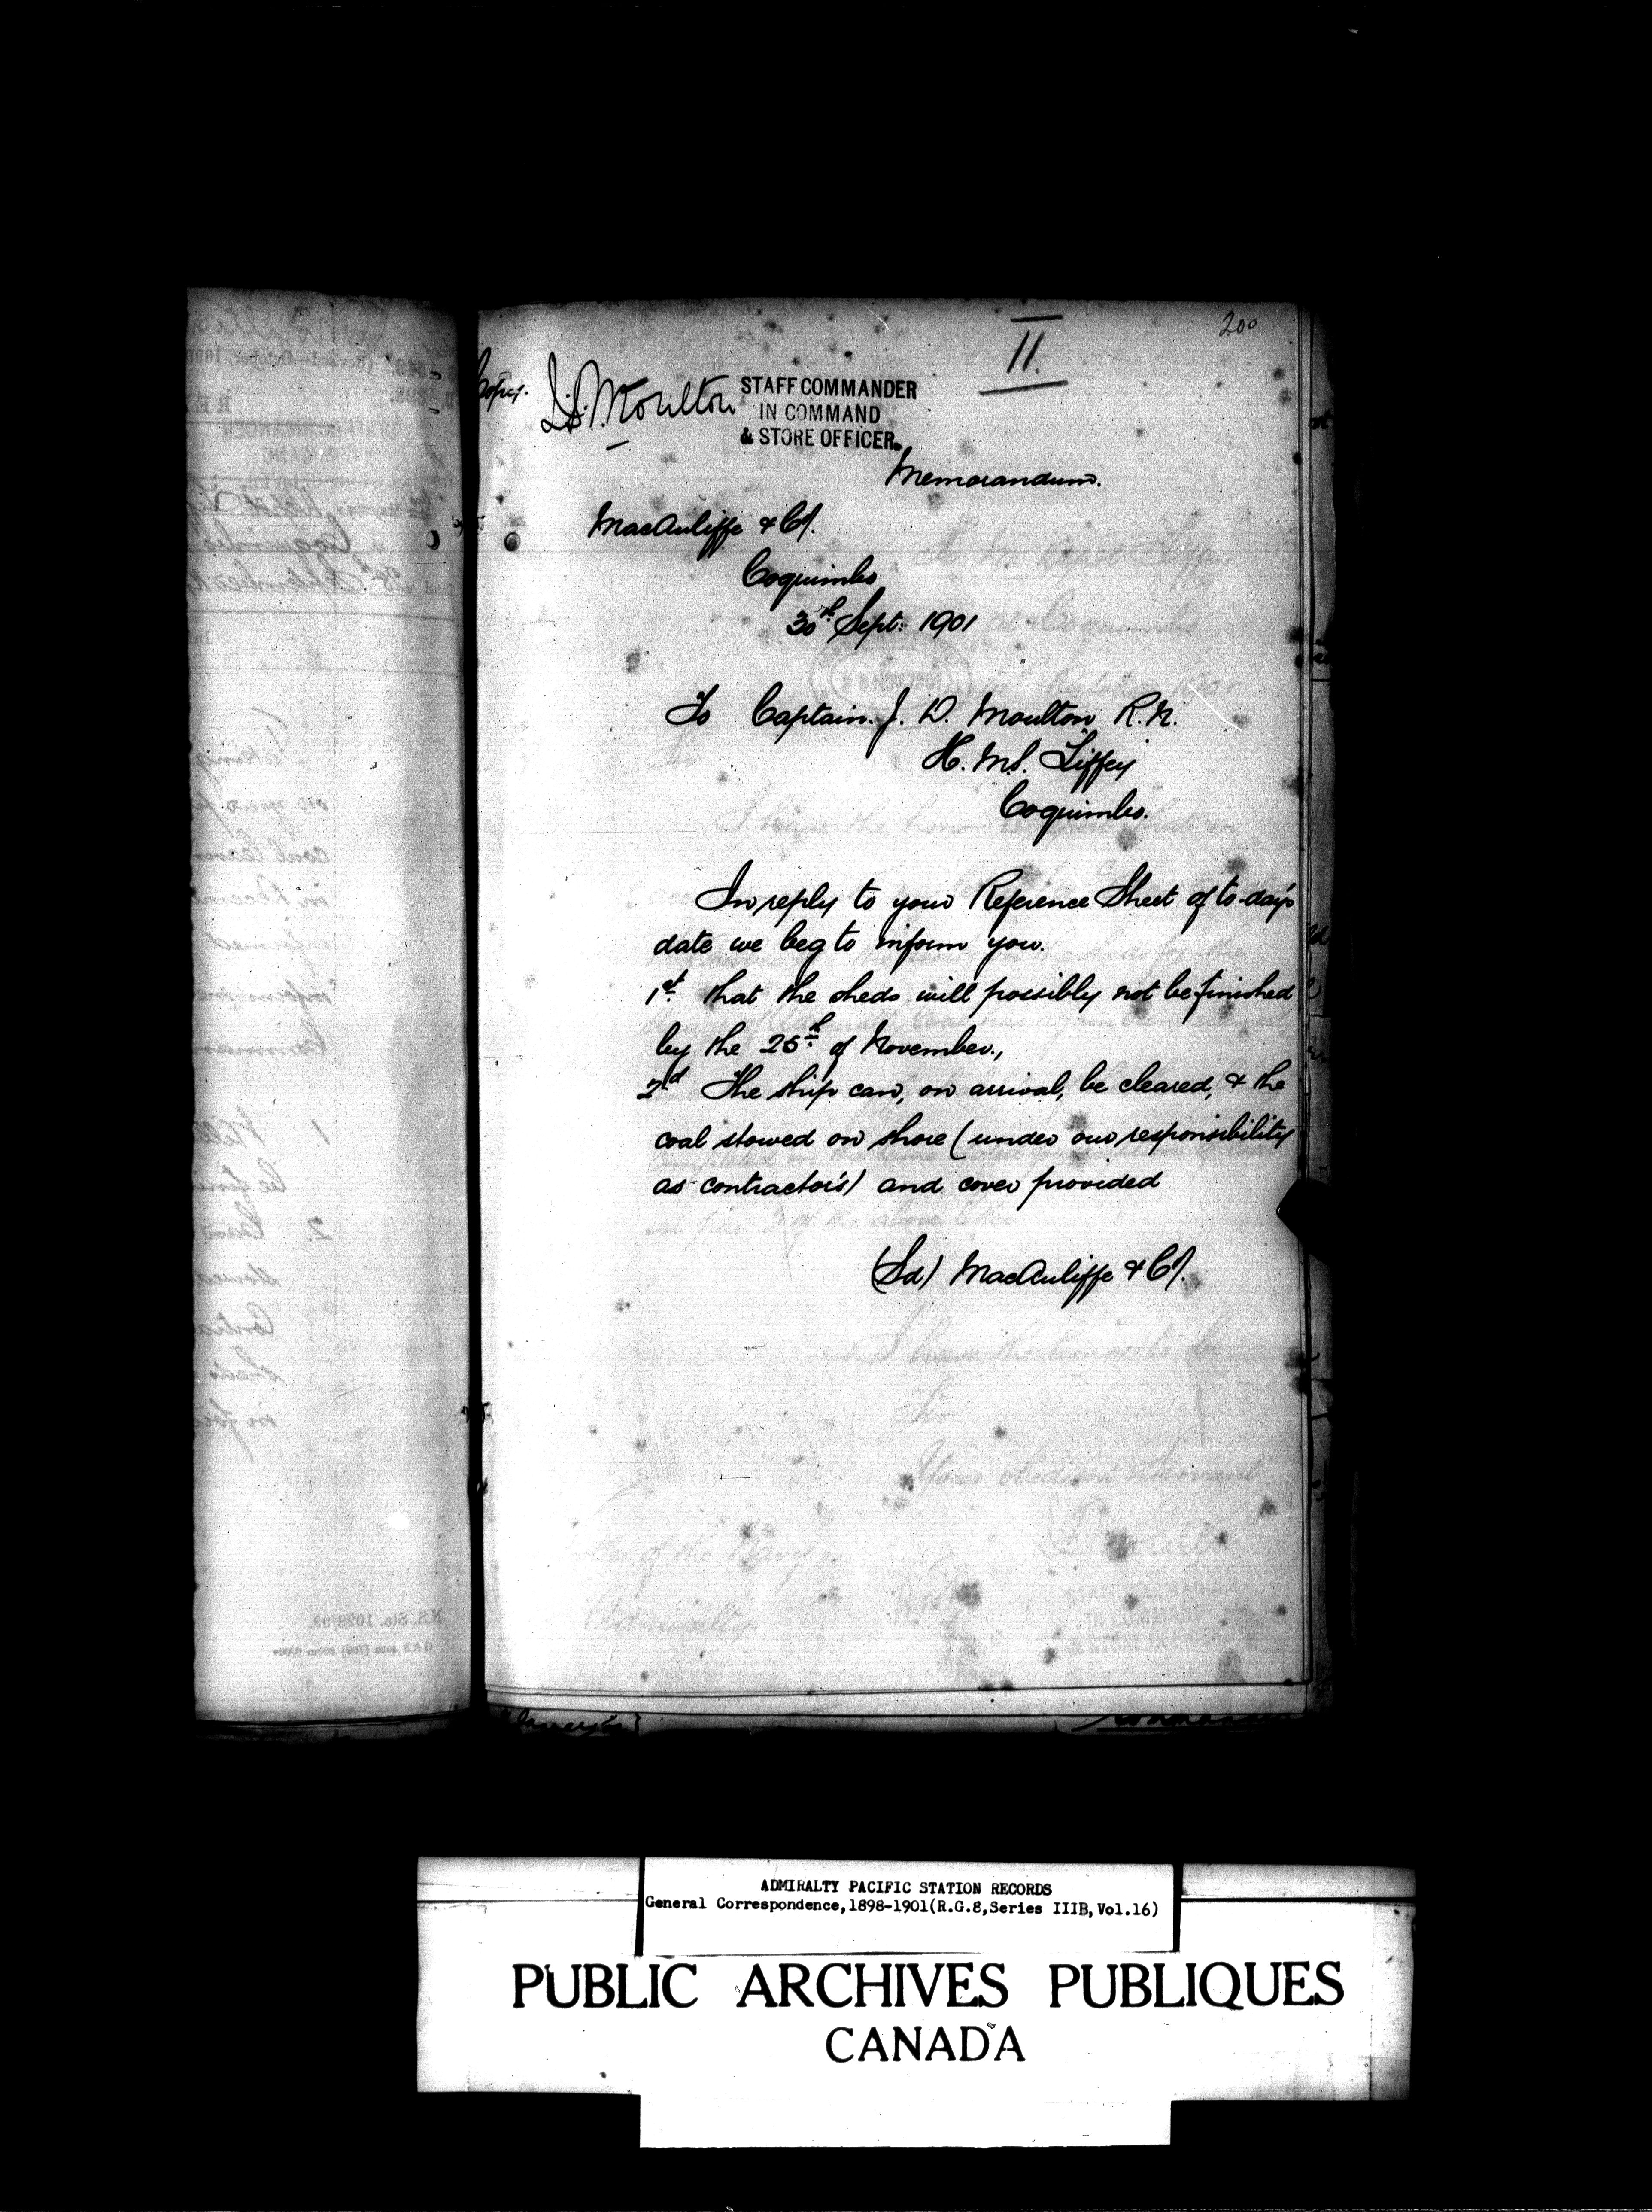 200
11.
Copy.
J.D. Moulton
STAFF COMMANDER
IN COMMAND
& STORE OFFICER.
Memorandum.
MacAuliffe & Co/.
Coquimbo
30th Sept: 1901
To Captain. J. D. Moulton R.N.
H.M.S. Liffey
Coquimbo.
In reply to your Reference Sheet of to-day's
date we beg to inform you.
1st. that the sheds will possibly not be finished
by the 25th of November.,
2d The ship can, on arrival, be cleared, & the
coal stowed on shore (under our responsibility
as contractor's) and cover provided
(Sd) MacAuliffe & Co/.
ADMIRALTY PACIFIC STATION RECORDS
General Correspondence, 1898-1901 (R.G.8, Series IIIB, Vol.16)
PUBLIC ARCHIVES PUBLIQUES
CANADA